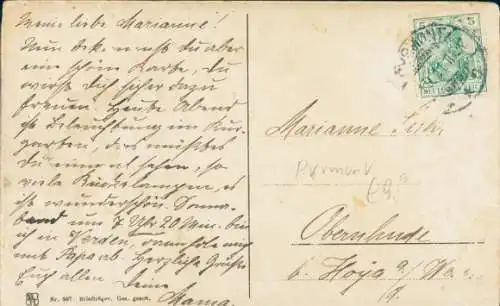 Meine liebe Marianne!
Nun bekommst du aber
ein schöne Karte, du
wirst dich sicher dazu
freuen. Heute Abend
ist Beleuchtung im Kur-
garten, das müsstest
du einmal sehen, so
viele Lampen, es
ist wunderschön. Donners-
um 7 Uhr 20 Min. bin
ich in Verden, dann
mit Papa ab. Herzliche Grüße
Euch allen Deine
Mama.
Marianne
Pyrmont
Obernhude
b. Hoya a/ Weser
Nr. 907